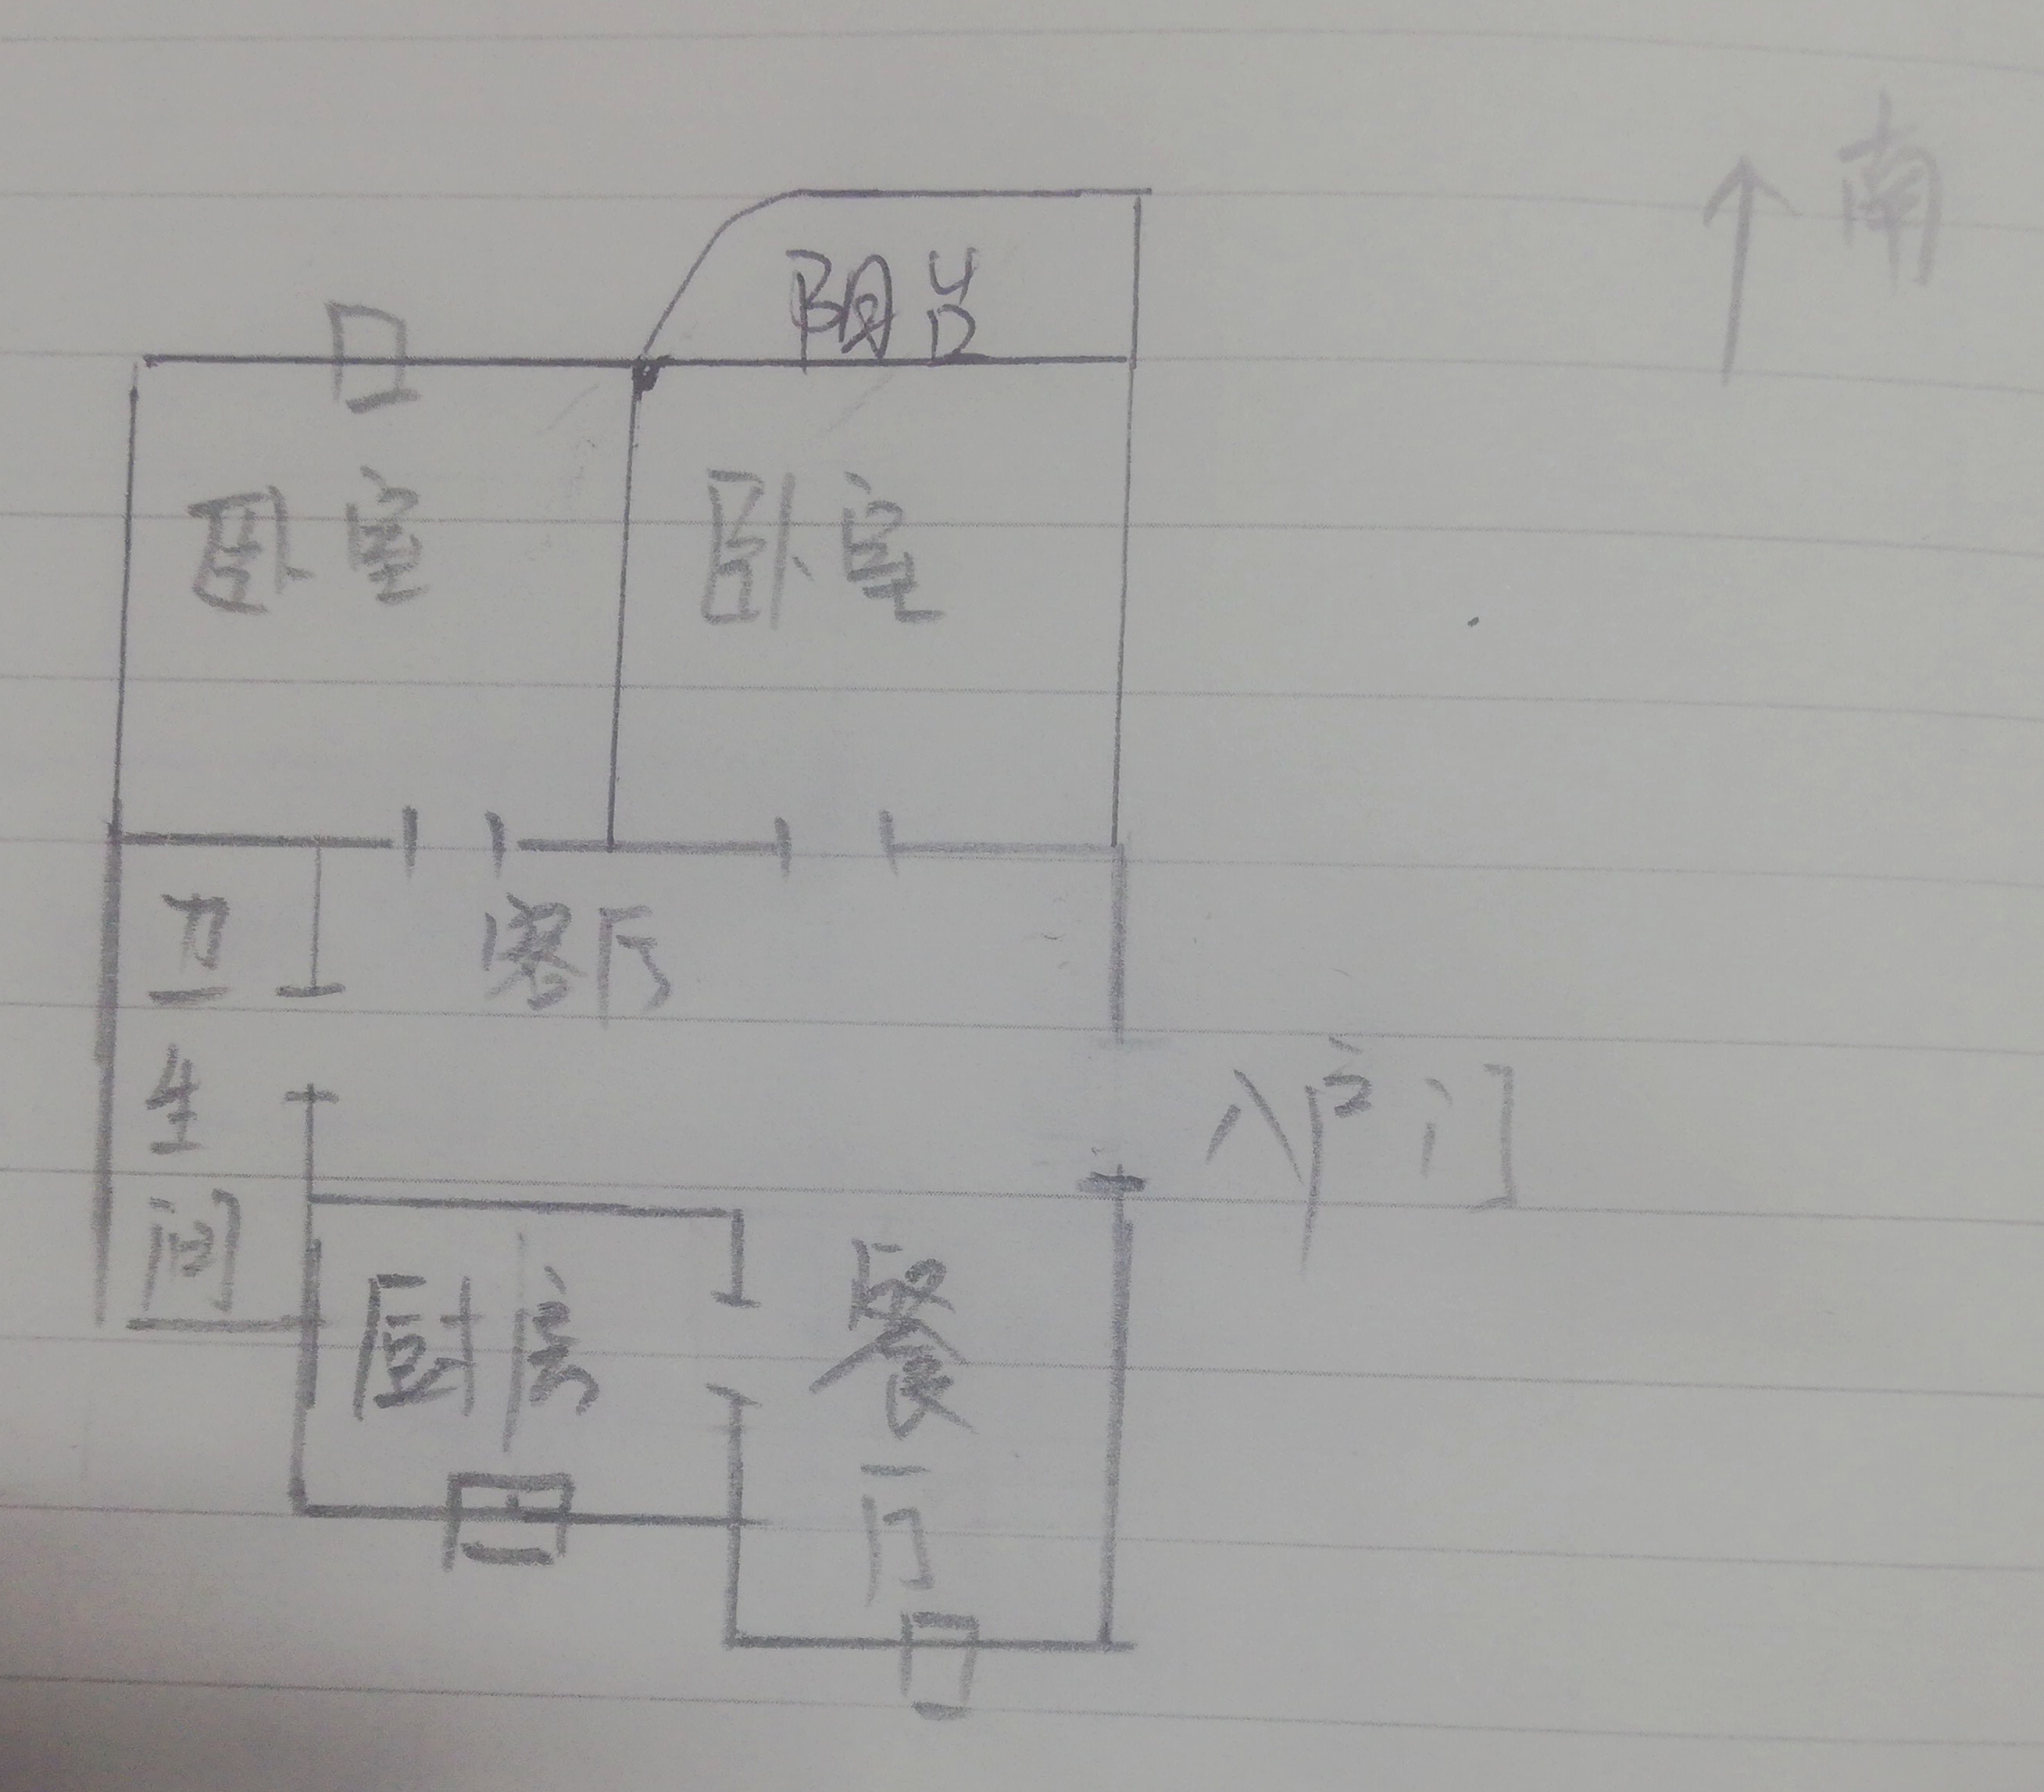 南
阳台
卧室
卧室
卫生间
客厅
入户门
厨房
餐厅